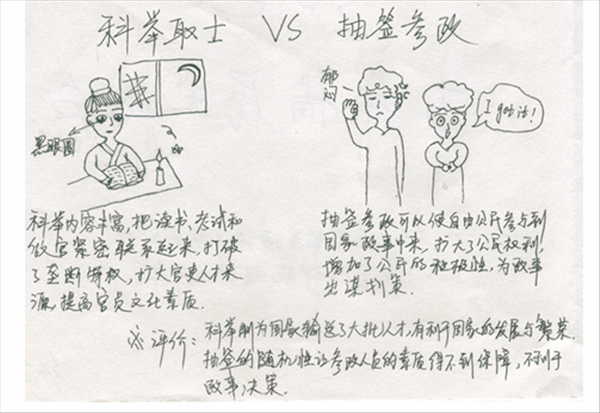 科举取士 VS 抽签参政
黑眼圈
郁闷
I got it!
科举内容丰富,把读书、考试和
做官紧密联系起来,打破
了垄断特权,扩大官吏人才来
源,提高官员文化素质.
抽签参政可以使自由公民参与到
国家政事中来,扩大了公民权利.
增加了公民的积极性,为政事
出谋划策.
※评价:科举制为国家输送了大批人才,有利于国家的发展与繁荣.
抽签的随机性让参政人员的素质得不到保障,不利于
政事决策.